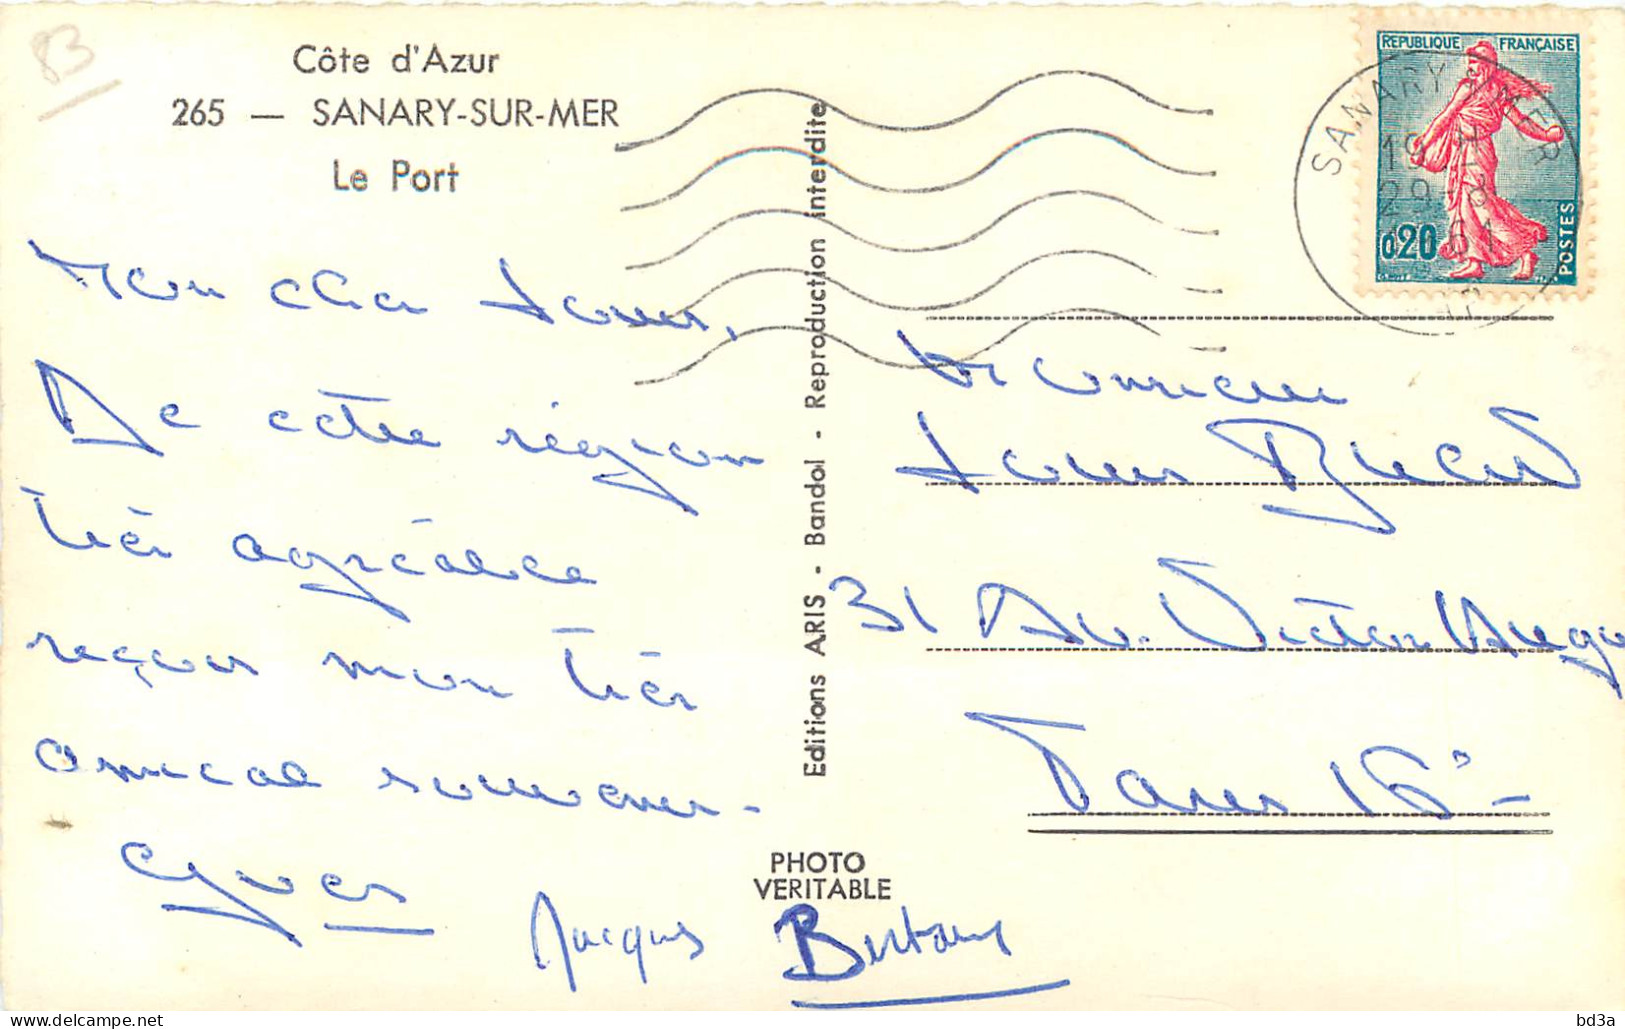 83
Côte d'Azur
265 — SANARY-SUR-MER
Le Port
Mon cher Louis,
De cette région
très agréable
reçois mon très
amical souvenir -
Yves
Jacques
Editions ARIS - Bandol - Reproduction interdite
PHOTO
VERITABLE
REPUBLIQUE FRANÇAISE
0,20
POSTES
SANARY S MER
19 H
29-8
1961
Monsieur
Louis
31 Av. Victor Hugo
Paris 16e -
bd3a